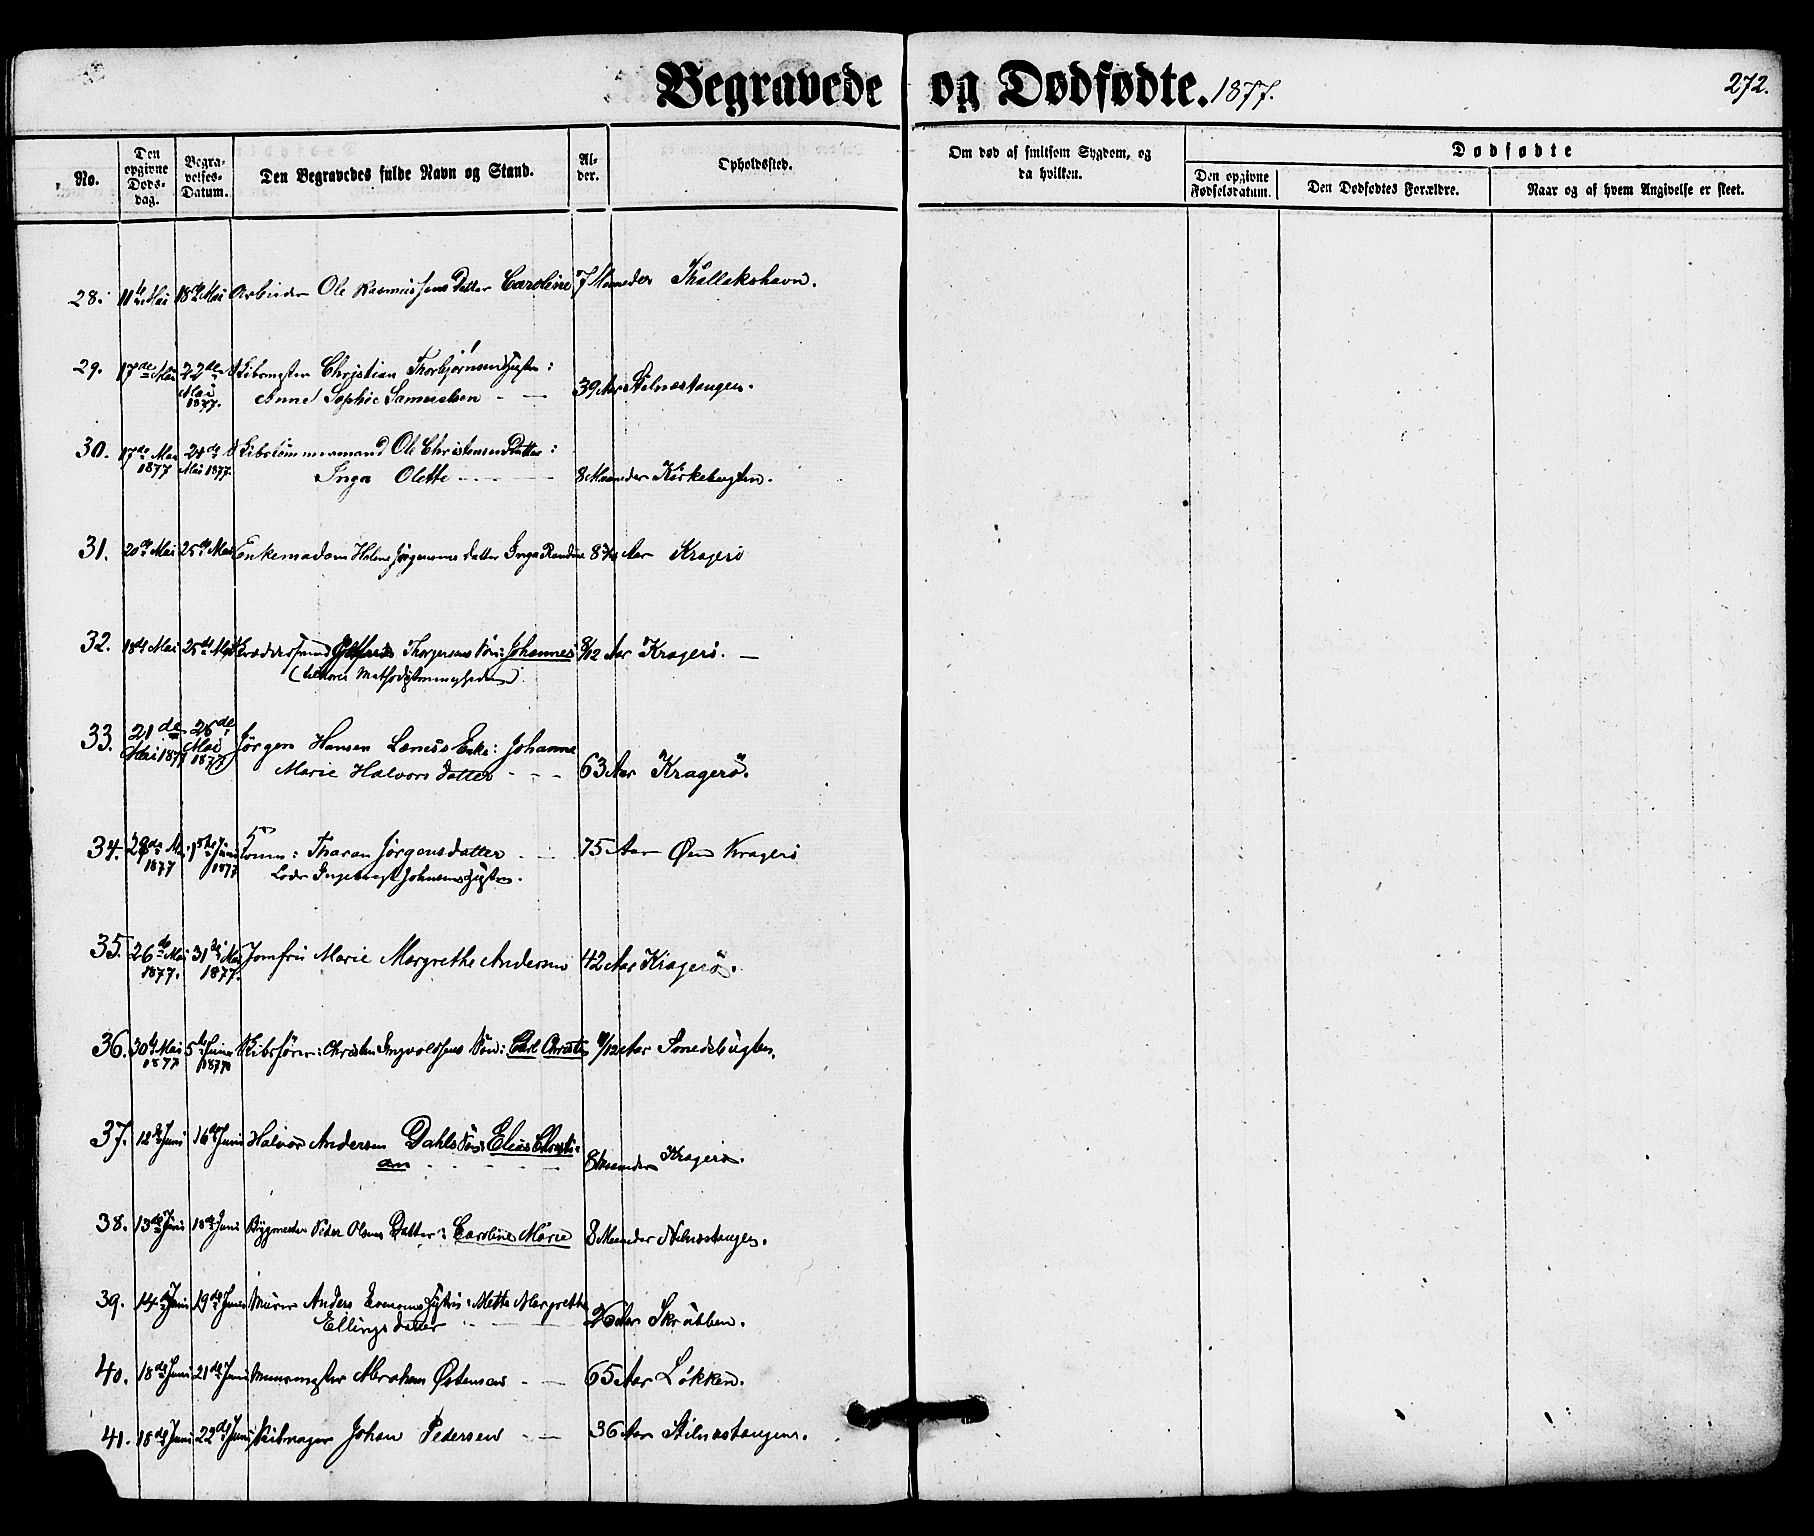 Begravede og Dødfødte. 1877. 272.
No. Den opgivne Døds-dag. Begra-velses-Datum. Den Begravedes fulde Navn og Stand. Al-der. Opholdssted. Om død af smitsom Sygdom, og da hvilken. Dødfødte
Den opgivne Fødselsdatum. Den Dødfødtes Forældre. Naar og af hvem Angivelse er skeet.
28. 11te Mai 18de Mai Arbeider Ole Rasmussens Datter Caroline 7 Maaneder Thallakshavn.
29. 17de Mai 22de Mai 1877. Christian Thorbjørnsens Hustru:
Anne Sophie Samuelsen - — 39 Aar Stilnæstangen.
30. 17de Mai 1877 24de Mai 1877. Skibstømmermand Ole Christensens Datter:
Inga Olette - - - — 8 Maaneder Kirkebugten.
31. 20de Mai 25de Mai Enkemadam Helene Jørgensens datter Inga Randine 8 Aar Kragerö
32. 18de Mai 25de Mai Thorgersens Søn: Johannes 8/12 Aar Kragerö. —
33. 21de Mai 1877 26de Mai 1877 Jörgen Hansen Enke: Johanne
Marie Halvorsdatter - - - 63 Aar Kragerö.
34. 28de Mai 1877 1ste Juni 1877 Tharan Jørgensdatter - — 75 Aar Øen Kragerö
Lods Ingebregt Johnsens Hustru.
35. 26de Mai 1877. 31te Mai 1877. Jomfru Marie Margrethe Andersen 42 Aar Kragerö.
36. 30te Mai 1877 5te Juni 1877 Skibsfører: Christen Ingvoldsens Søn: Carl Christian /12 Aar Smedsbugten.
37. 12te Juni 16de Juni Halvor Andersen Dahls Søn: Elias Christi-
an - - - - — 8 Maaneder Kragerö.
38. 13de Juni 18de Juni Bygmester Peder Olsens Datter: Caroline Marie 8 Maaneder Stilnæstangen.
39. 14de Juni 19de Juni Murer Anders Evensens Hustru: Mette Margrethe
Ellingsdatter - - — 26 Aar Skrubben.
40. 18de Juni 21de Juni Murmester Abraham Østensen - — 65 Aar Løkken.
41. 18de Juni 22de Juni Johan Pedersen - — 36 Aar Stilnæstangen.